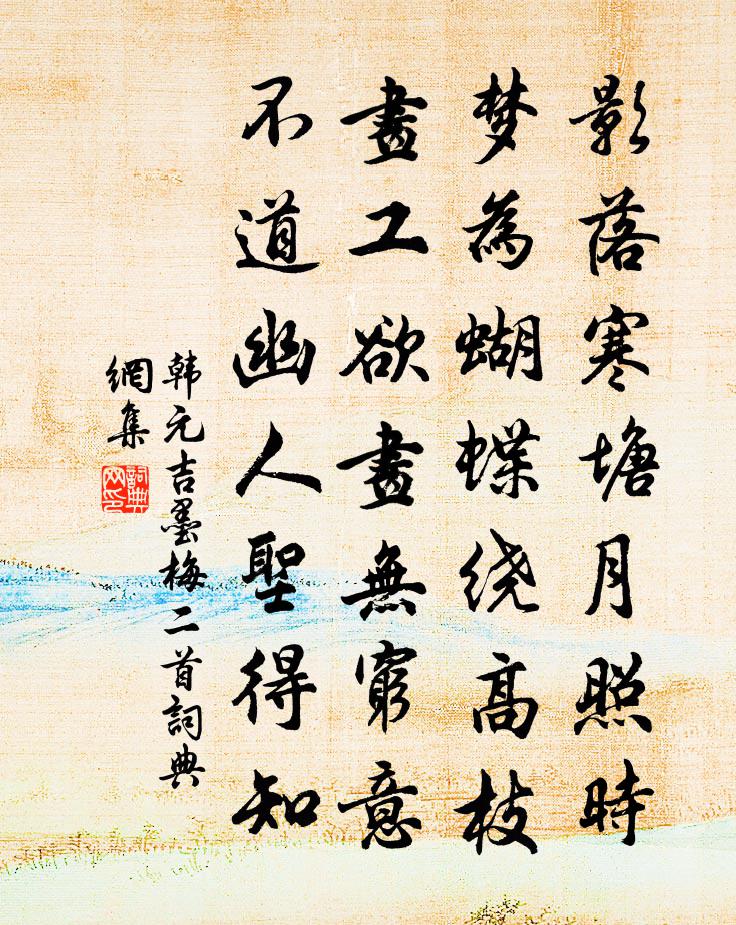 影落寒塘月照時
梦為蝴蝶绕高枝
畫工欲畫無窮意
不道幽人聖得知
韩元吉墨梅二首詞典
網集
詞典
网印